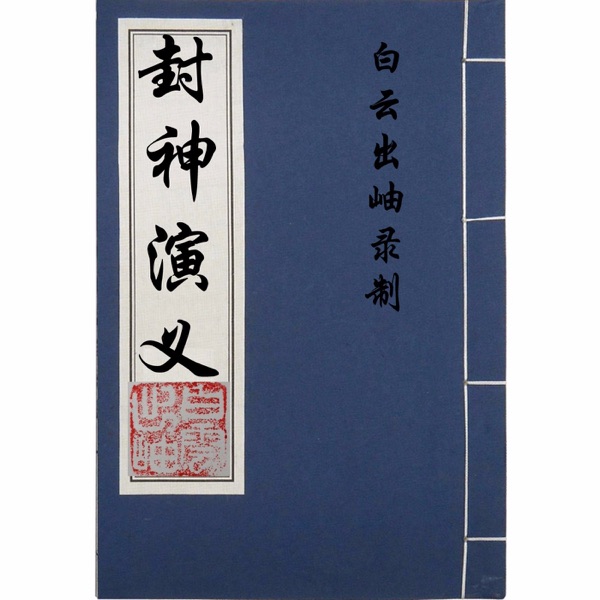 封神演义
白云出岫录制
白云出岫